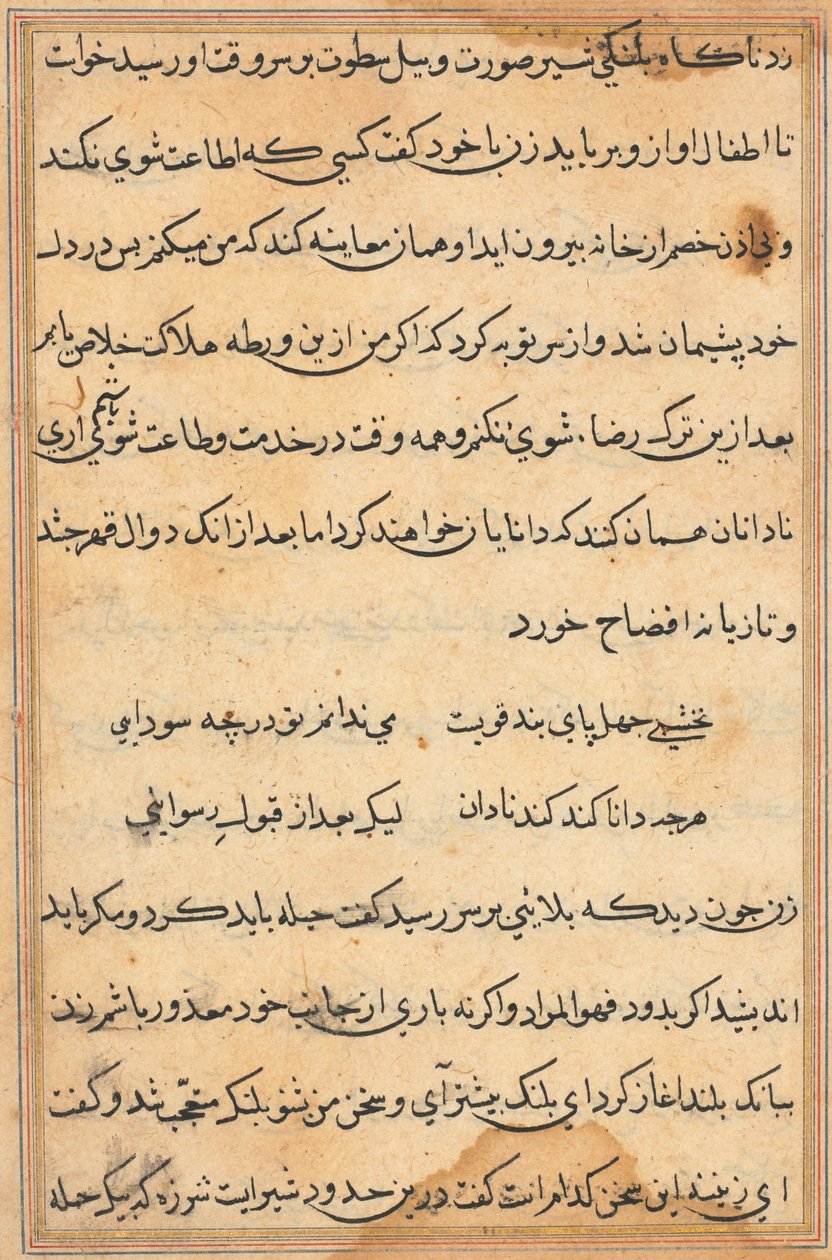 زد ناکاه بلنکی شیر صورت و بیل سطوت بر سر وقت او رسید خواست
تا اطفال او از و بر باید زن با خود کفت کسی که اطاعت شوی نکند
و بی اذن خصم از خانه بیرون اید او همان معاینه کند که من میکنم بس در دل
خود پشیمان شد و از سر توبه کرد که اکر من ازین ورطه هلاکت خلاص یابم
بعد ازین ترک رضاء شوی نکنم و همه وقت در خدمت و طاعت شوی باشم اری
نادانان همان کنند که دانایان خواهند کرد اما بعد از انک دوال قهر جشد
و تازیانه افضاح خورد
نخشبی جهل پای بند قویست می ندانم تو در چه سودایی
هرجه دانا کند کند نادان لیک بعد از قبول رسوایی
زن جون دید که بلائی بر سر رسید کفت حیله باید کرد و مکر باید
اندیشید اکر بدود فهو المراد و اکر نه باری از جانب خود معذور باشم زن
ببانک بلند اغاز کرد ای بلنک بیشتر آی و سخن من بشنو بلنک متعجّب شد و کفت
ای زینه این سخن کدام است کفت درین حدود شیر ایست شرزه که بیک حمله